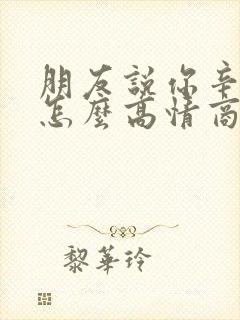 朋友說你辛
怎麼高情商
黎華玲